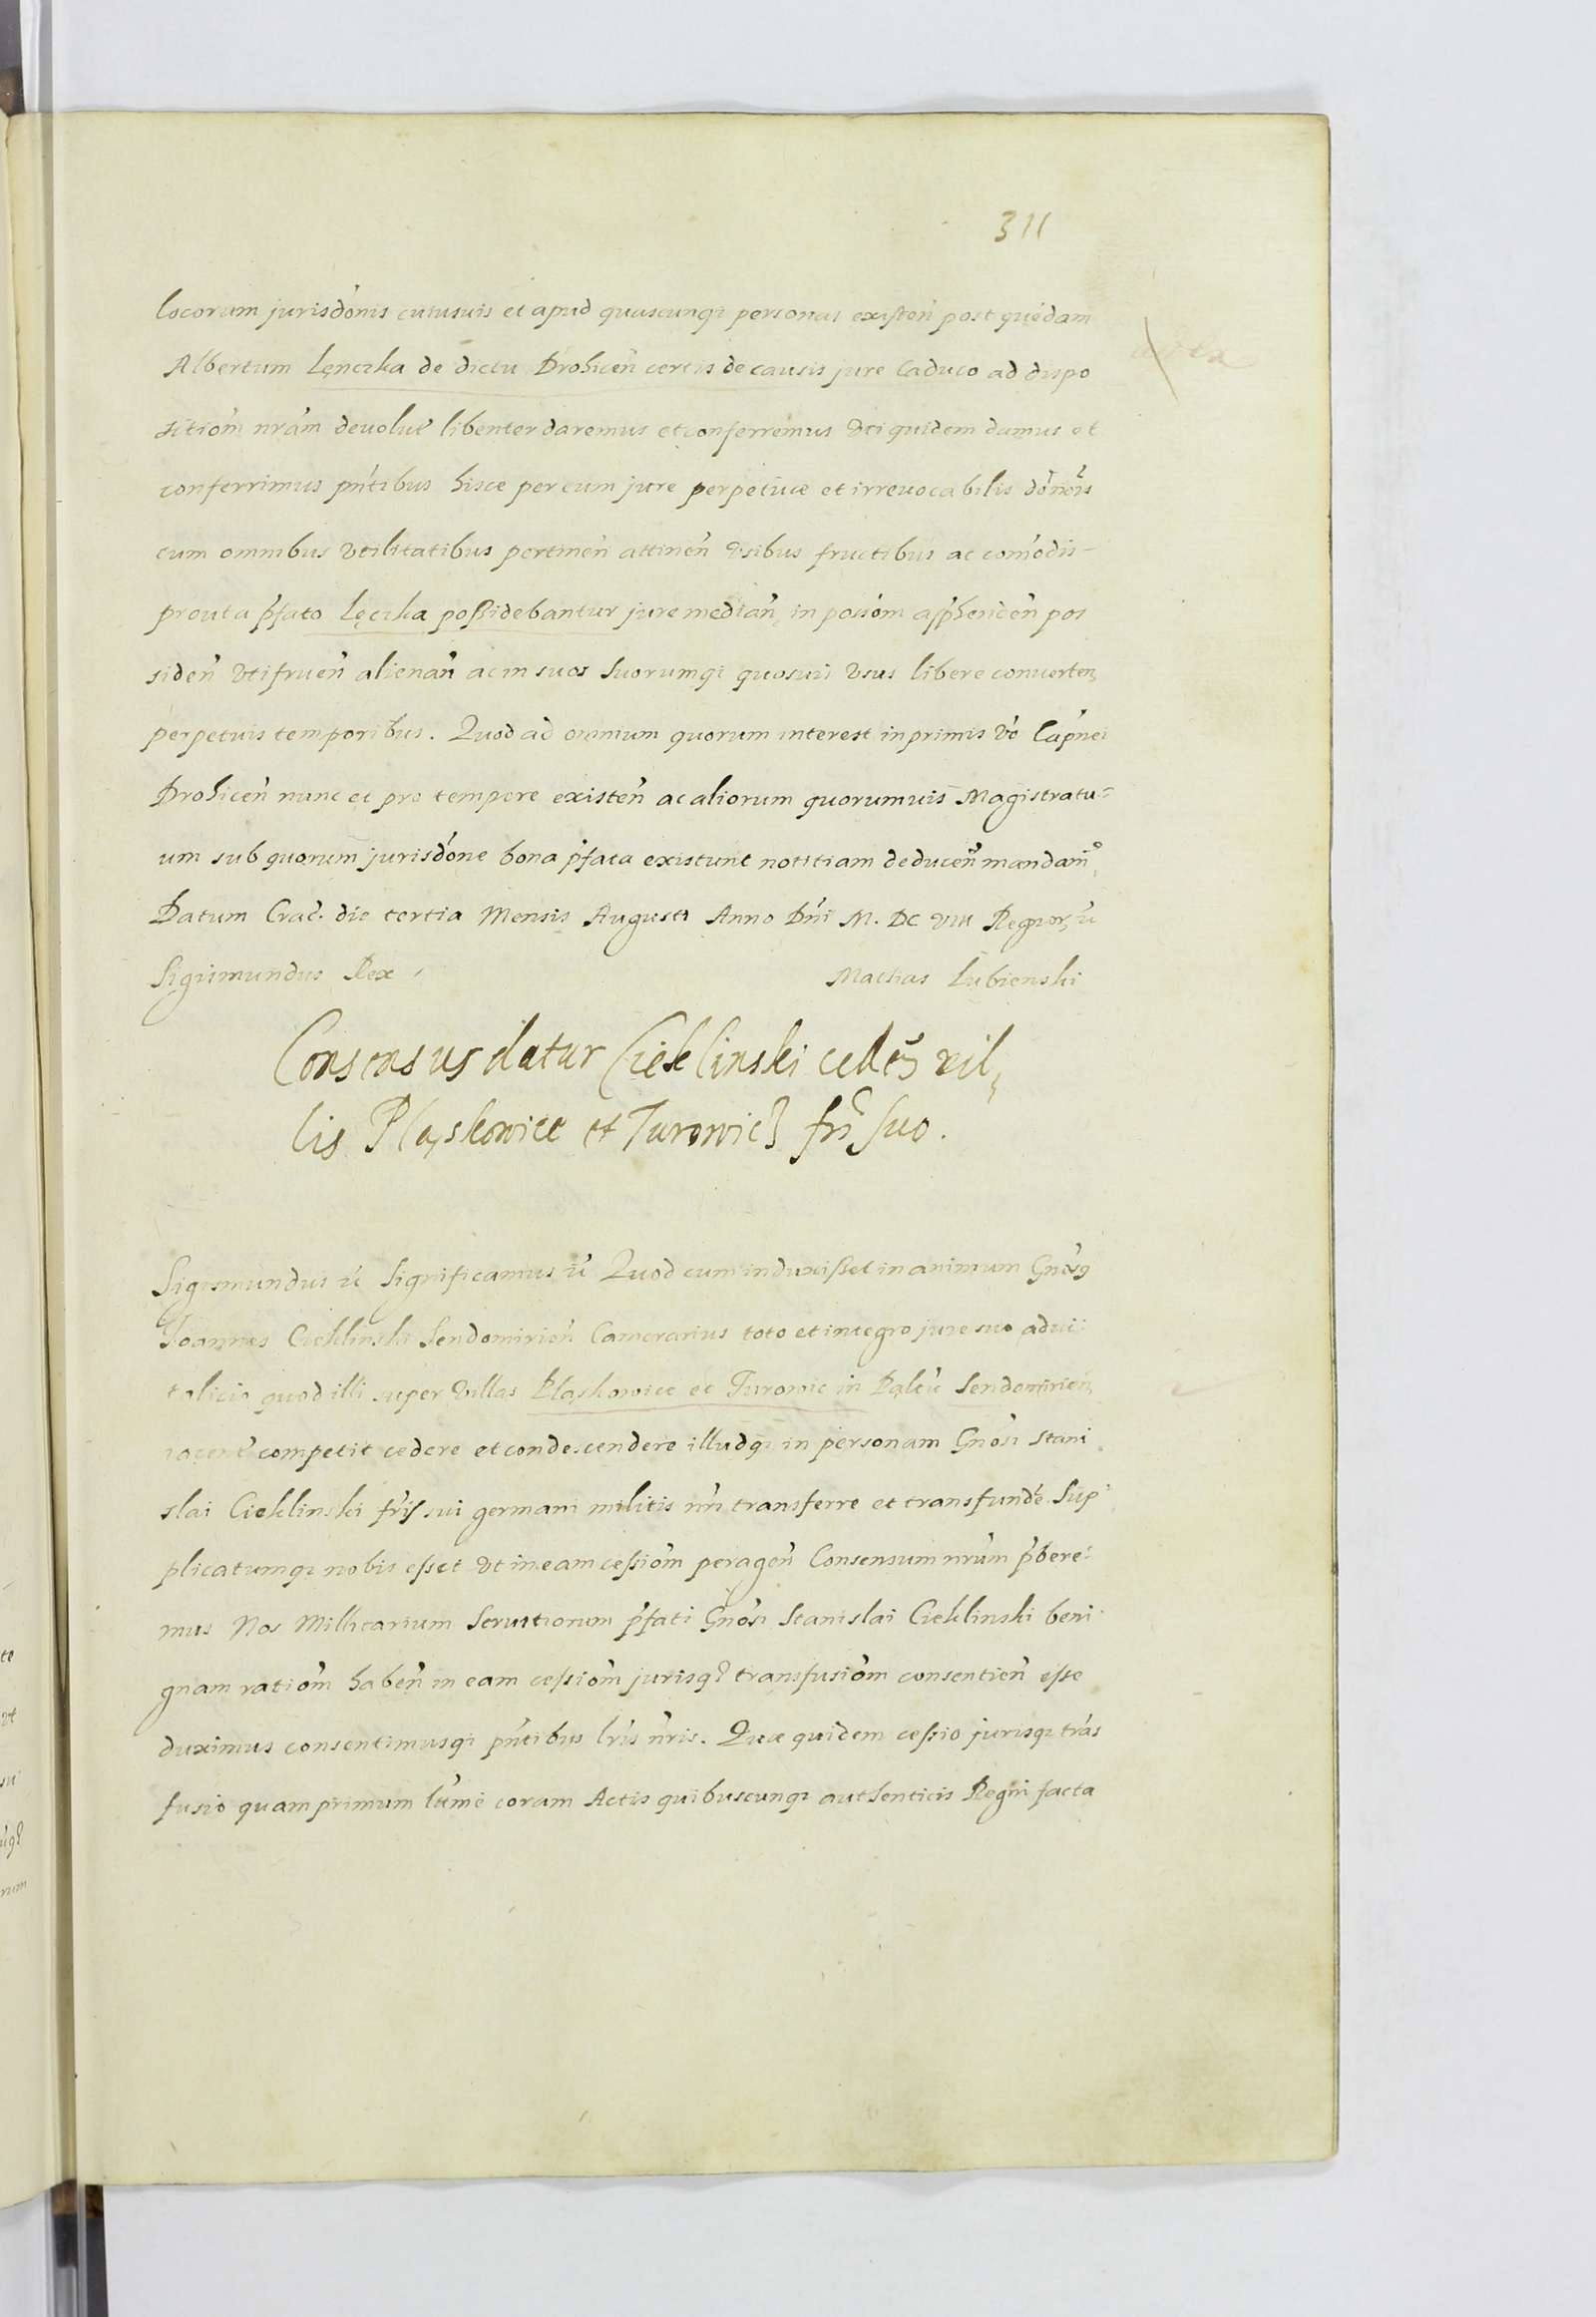 311
locorum jurisdónis cuiusuis et apud quascunqꝫ personas existeń post quédam
Albertum Lęnczka de dictu Drohiceń certis de causis jure Caduco ad dispo
sitióm nrám deuolut́ libenter daremus et conferremus vti quidem damus et
conferrimus pńtibus hisce per eum jure perpetuæ et irreuocabilis dónóis
cum omnibus vtilitatibus pertineń attineń vsibus fructibus ac comódis
prout a pꝼato Lęczka poßidebantur jure mediań in possióm apꝓheńdeń pos
sideń vtifrueń alienań ac in suos suorumqꝫ quosuis vsus libere conuerteń
perpetuis temporibus. Quod ad omnium quorum interest inprimis vó Cápnei
Drohiceń nunc et pro tempore existeń ac aliorum quorumuis Magistratu=
um sub quorum jurisdóne bona pꝼata existunt notitiam deduceń mandam⁹
Datum Crac̃. die tertia Mensis Augusti Anno Dńi M. DC VIII Regnorꝫ ú
Sigismundus Rex
Mathias Lubienski
Consensus datur Cieklinski cedeń vil
lis Pląskowice et Turowicꝫ fri suo.
Sigismundus ú Significamus ú Quod cum induxißet in animum Gnós⁹
Joannes Cieklinski Sendomirień Camerarius toto et integro jure suo adui
talicio quod illi super Villas Pląskowice et Turowic in Paltú Sendomirień
iaceńt competit cedere et condescendere illudqꝫ in personam Gnósi Stani
slai Cieklinski fris sui germani militis nri transferre et transfundé. Sup
plicatumqꝫ nobis esset vt in eam ceßióm perageń Consensum nrúm pꝼbere
mus Nos Millitarium Seruitiorum pꝼati Gnósi Stanislai Cieklinski beni
gnam ratióm habeń in eam ceßióm jurisqꝫ transfusióm consentień eße
duximus consentimusqꝫ pńtibus lrís nrís. Quæ quidem ceßio jurisqꝫ trás
fusio quamprimum túme coram Actis quibuscunqꝫ authenticis Regni facta